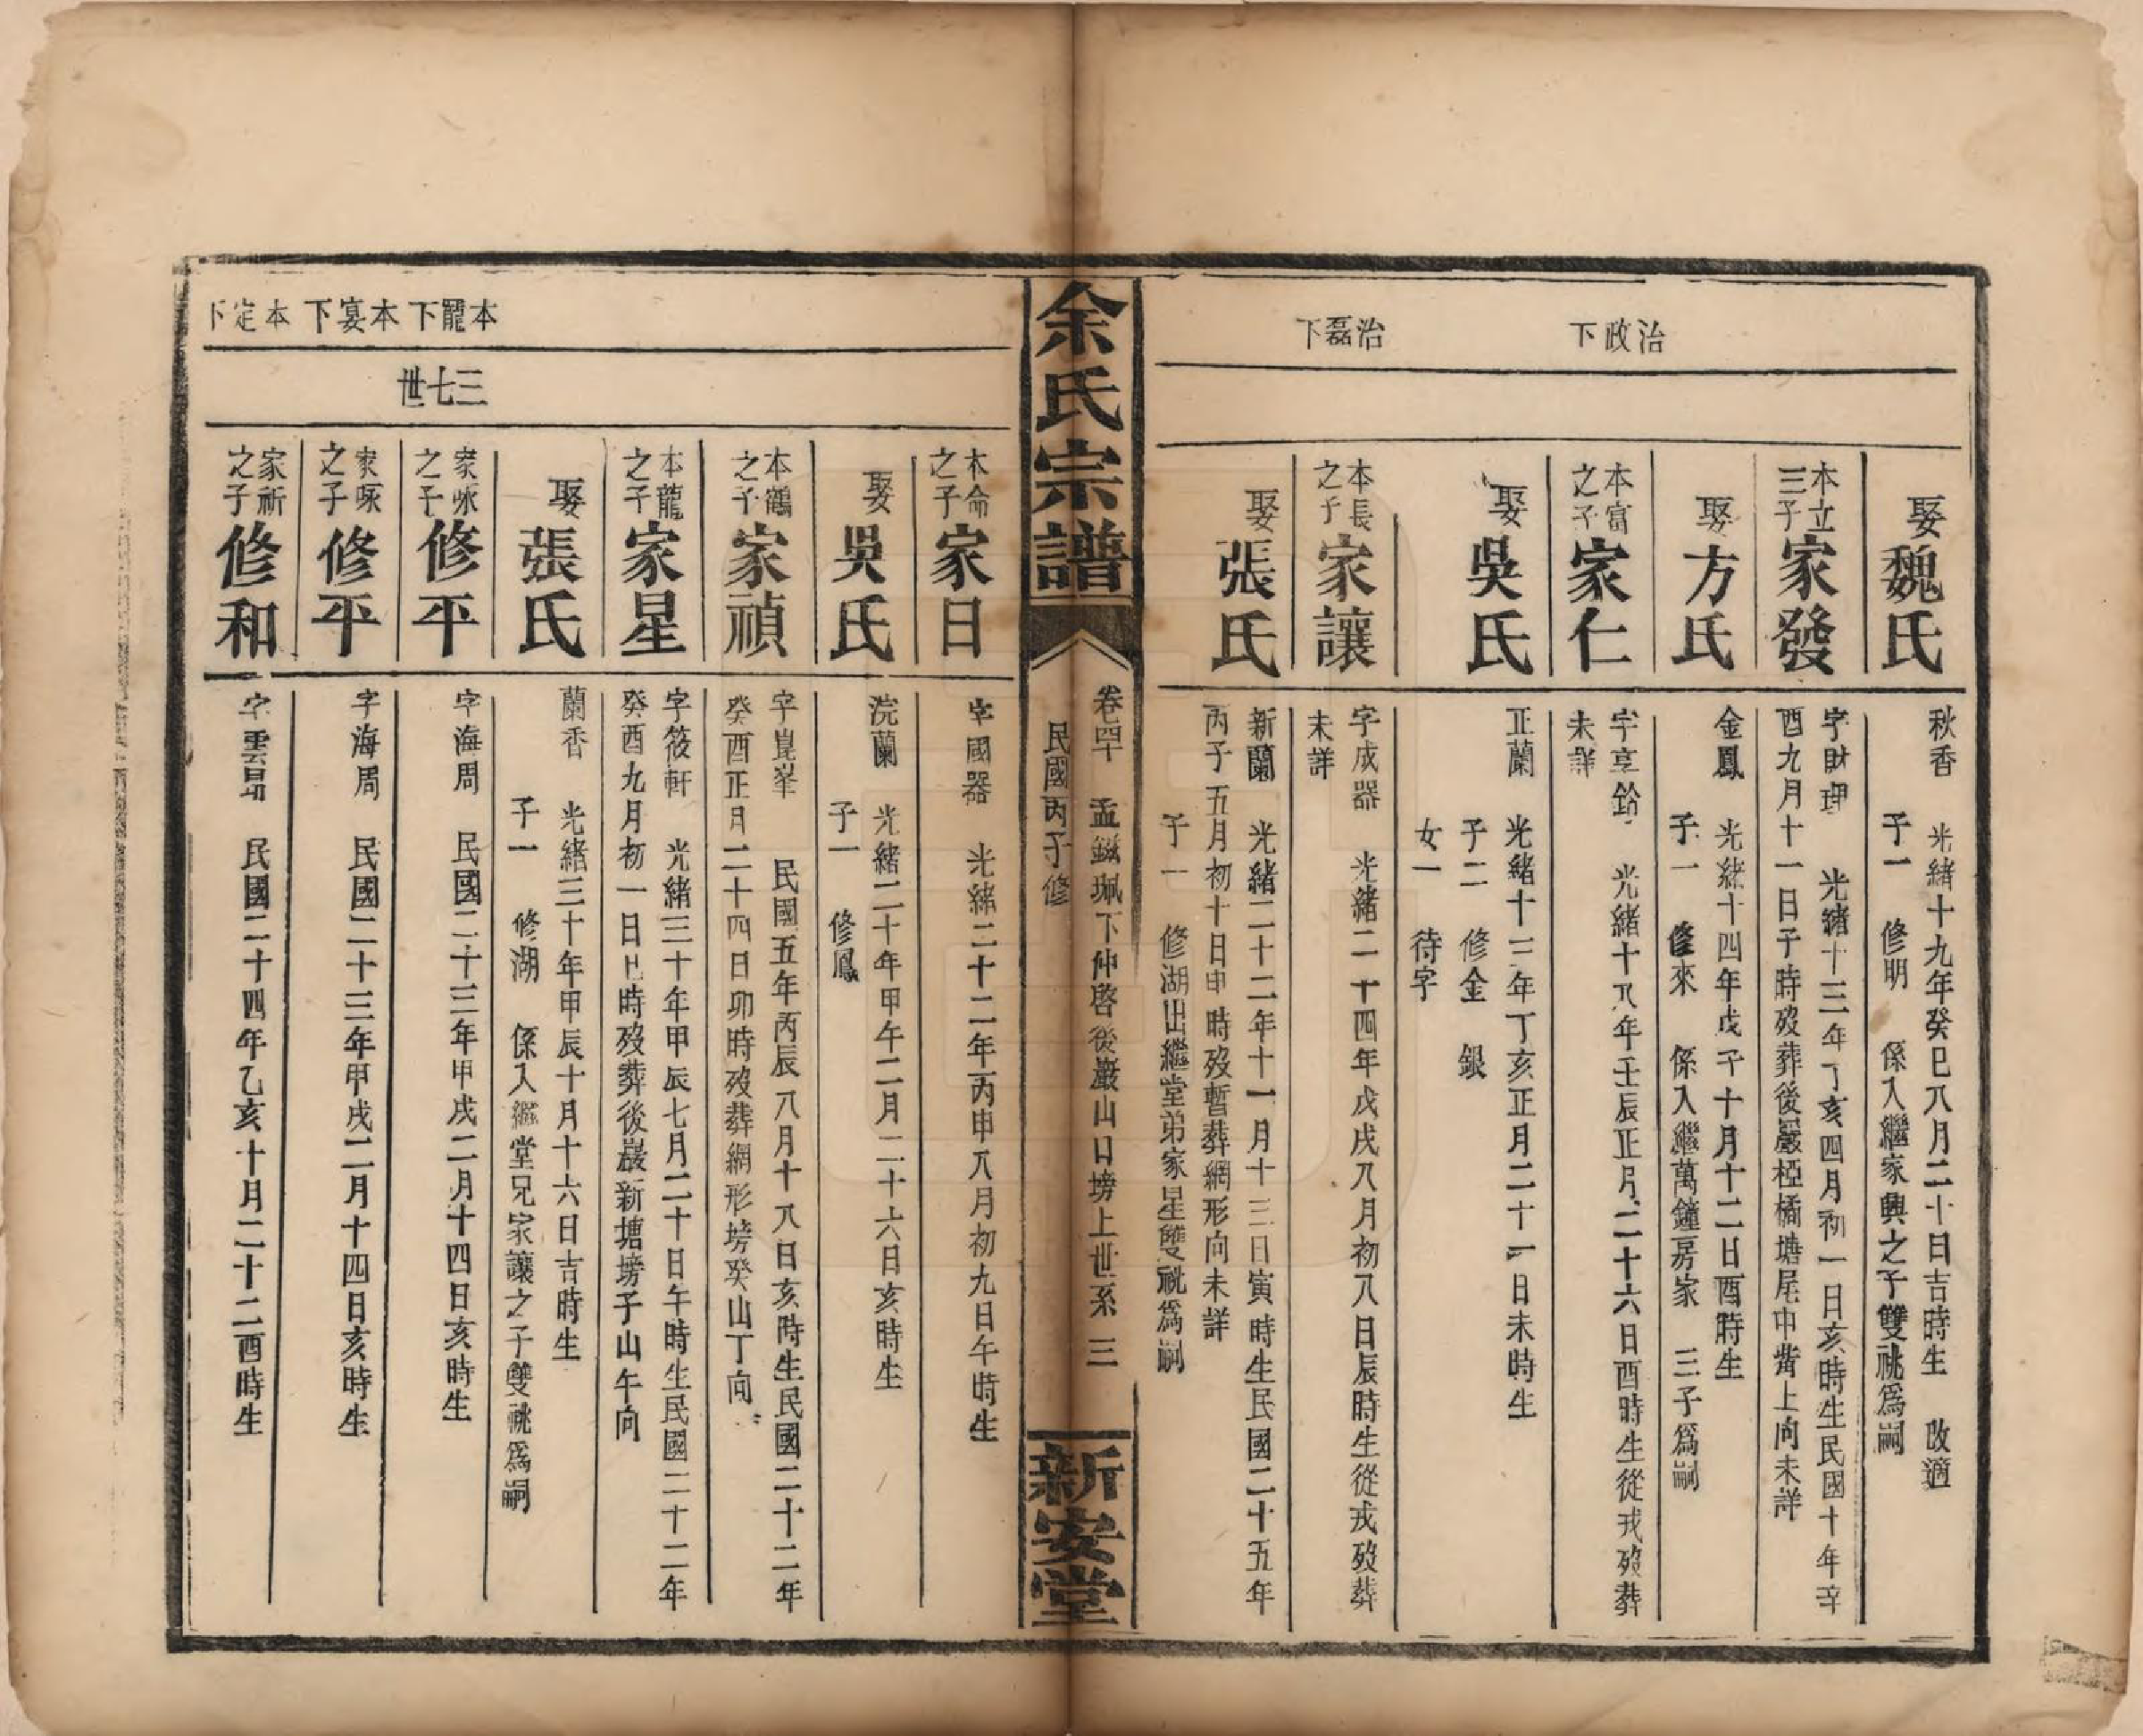 治政下
治磊下
娶魏氏
秋香 光緒十九年癸巳八月二十日吉時生 改適
子一 修明 係入繼家興之子雙祧爲嗣
本立三子家發
字財理 光緒十三年丁亥四月初一日亥時生民國十年辛
酉九月十一日子時歿葬後巖橋塘尾中嘴上向未詳
娶方氏
金鳳 光緒十四年戊子十月十二日酉時生
子一 修來 係入繼萬鐘房家 三子爲嗣
本富之子家仁
字享鈴 光緒十八年壬辰正月二十六日酉時生從戎歿葬
未詳
娶吳氏
正蘭 光緒十三年丁亥正月二十一日未時生
子二 修金 銀
女一 待字
本長之子家讓
字成器 光緒二十四年戊戌八月初八日辰時生從戎歿葬
未詳
娶張氏
新蘭 光緒二十二年十一月十三日寅時生民國二十五年
丙子五月初十日申時歿暫葬網形向未詳
子一 修湖出繼堂弟家星雙祧爲嗣
余氏宗譜
卷四 孟鎡珮下仲啓後巖山口塝上世系 三
民國丙子修
新安堂
本龍下
本宴下
本定下
三七世
本命之子家日
字國器 光緒二十二年丙申八月初九日午時生
娶吳氏
浣蘭 光緒二十年甲午二月二十六日亥時生
子一 修鳳
本鶴之子家禎
字崑峯 民國五年丙辰八月十八日亥時生民國二十二年
癸酉正月二十四日卯時歿葬網形塝癸山丁向
本龍之子家星
字筱軒 光緒三十年甲辰七月二十日午時生民國二十二年
癸酉九月初一日巳時歿葬後巖新塘塝子山午向
娶張氏
蘭香 光緒三十年甲辰十月十六日吉時生
子一 修湖 係入繼堂兄家讓之子雙祧爲嗣
家咏之子修平
字海周 民國二十三年甲戌二月十四日亥時生
家咏之子修平
字海周 民國二十三年甲戌二月十四日亥時生
家祈之子修和
字雲昂 民國二十四年乙亥十月二十二酉時生